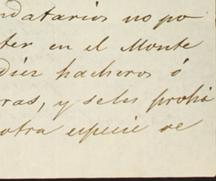 ndatarios no po
ter en el Monte
diez hacheros ó
ras, y se les prohi
otra especie de